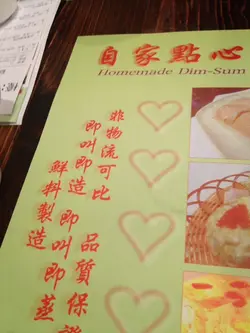 自家點心
Homemade Dim-Sum
非物流可比
品質保證
即叫即造
即叫即蒸
鮮料製造